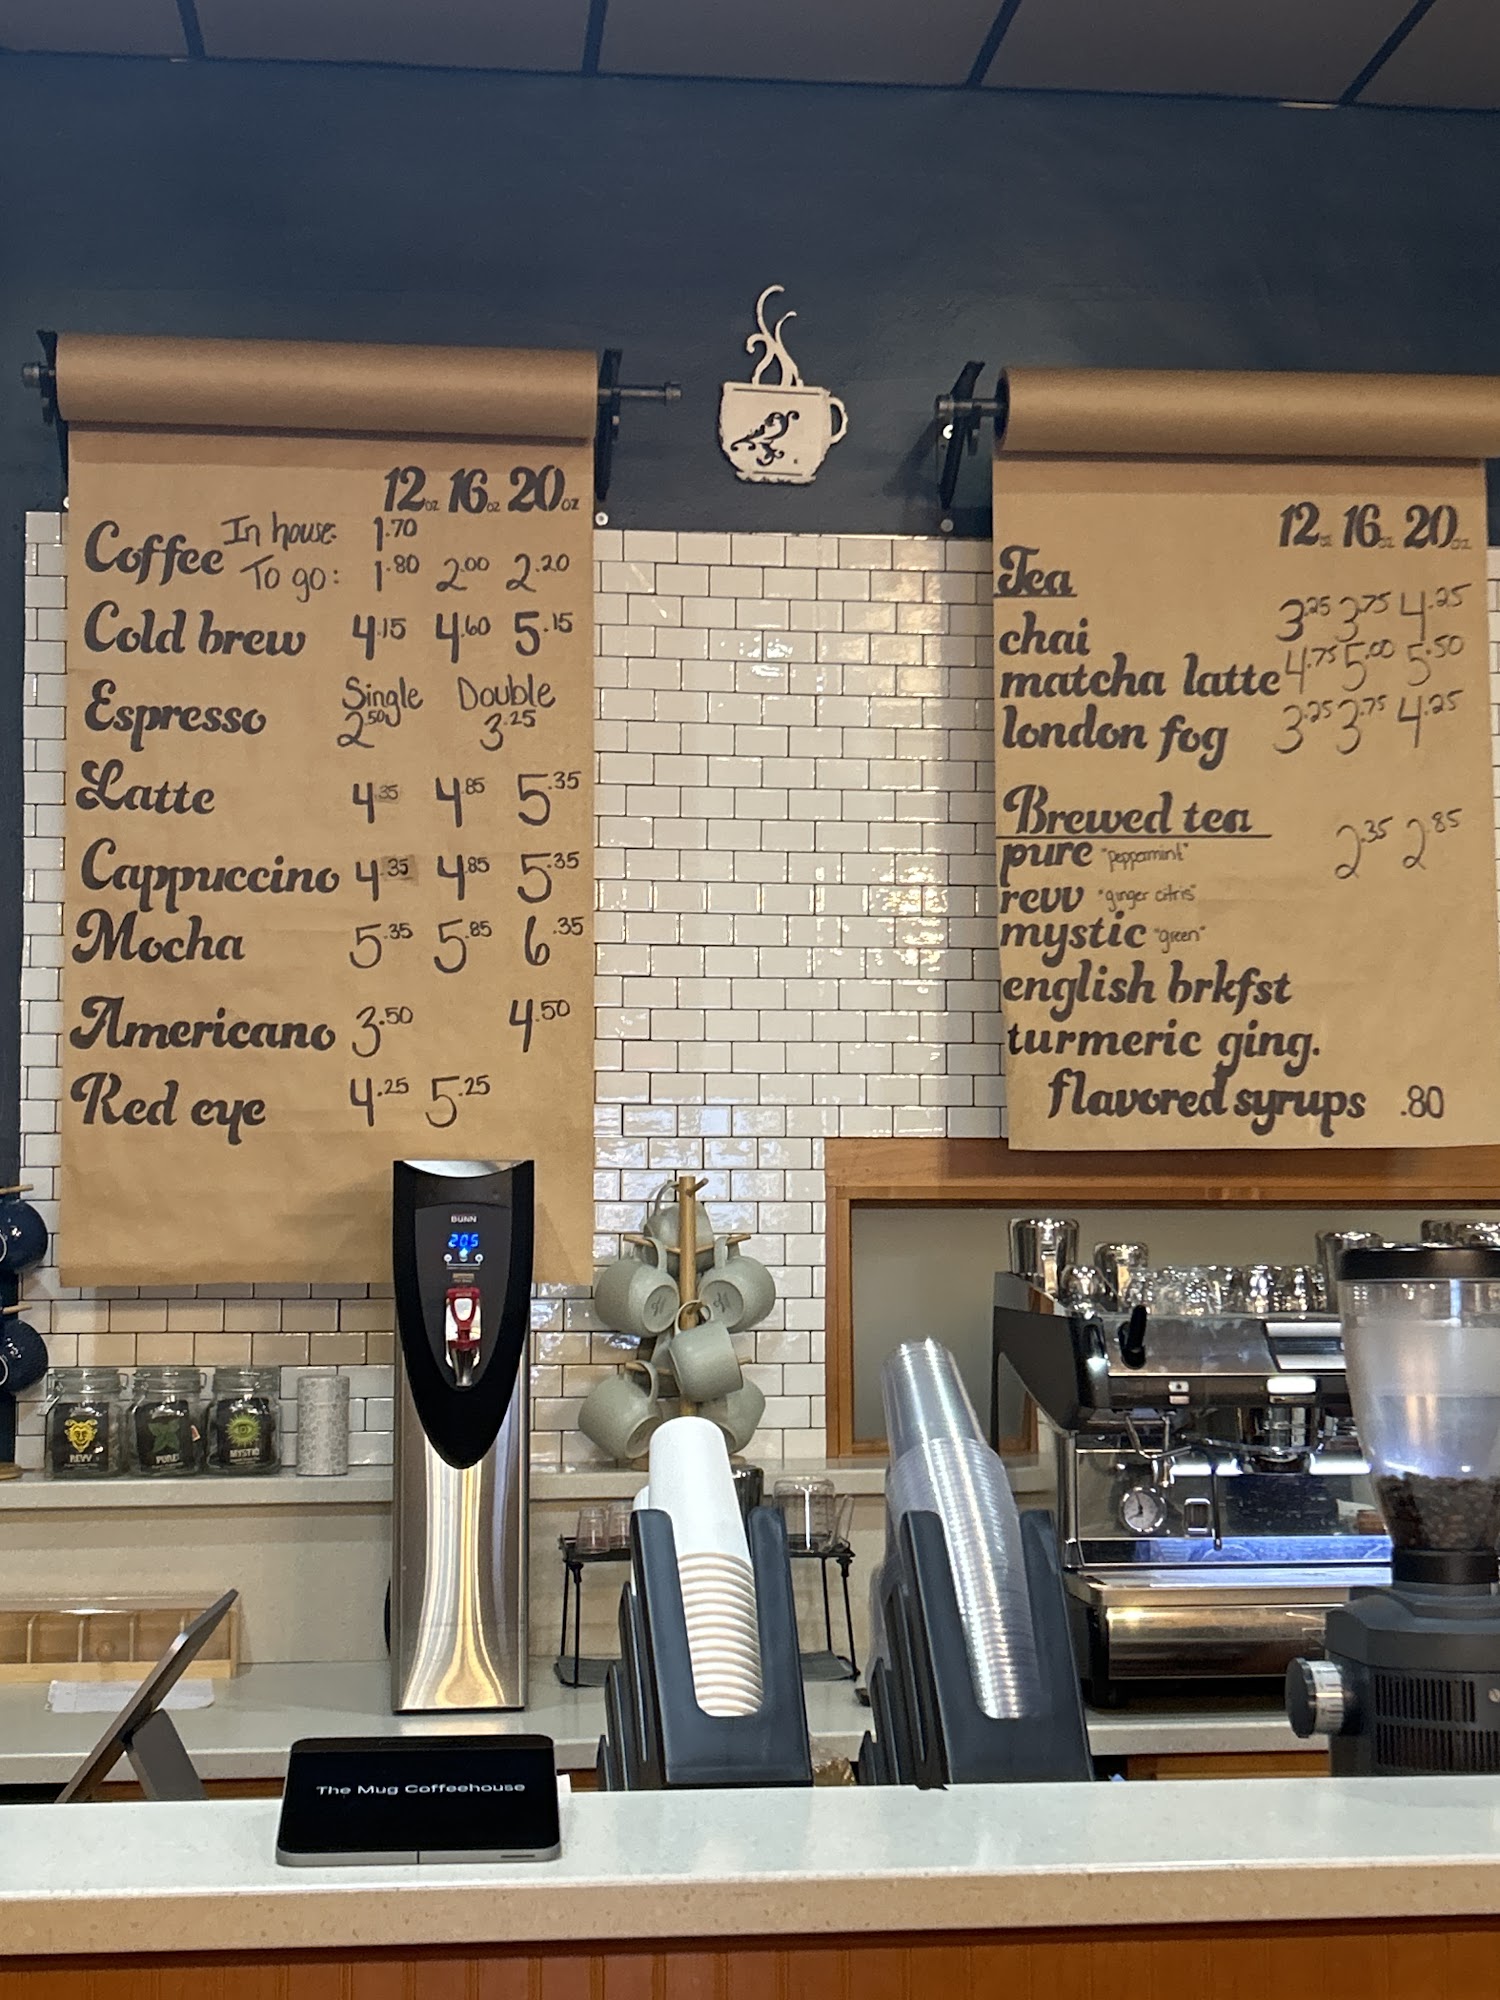 12oz 16oz 20oz
Coffee In house: 1.70
To go: 1.80 2.00 2.20
Cold brew 4.15 4.60 5.15
Single Double
Espresso 2.50 3.25
Latte 4.35 4.85 5.35
Cappuccino 4.35 4.85 5.35
Mocha 5.35 5.85 6.35
Americano 3.50 4.50
Red eye 4.25 5.25
12oz 16oz 20oz
Tea
chai 3.25 3.75 4.25
matcha latte 4.75 5.00 5.50
london fog 3.25 3.75 4.25
Brewed tea 2.35 2.85
pure "peppermint"
revv "ginger citris"
mystic "green"
english brkfst
turmeric ging.
flavored syrups .80
BUNN
205
REVV
PURE
MYSTIC
The Mug Coffeehouse